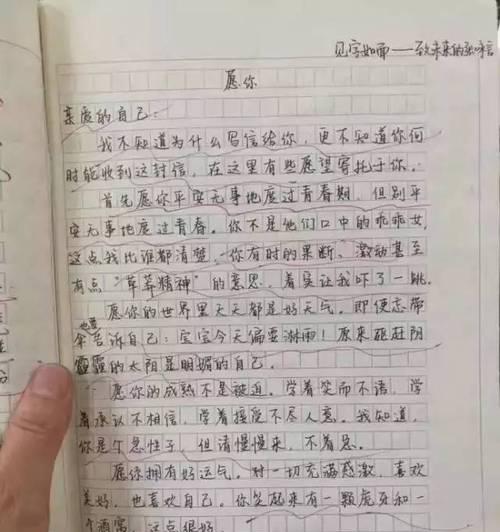 见字如面——致未来的
愿你
亲爱的自己：
我不知道为什么写信给你，更不知道你何
时能收到这封信，在这里有些愿望寄托于你。
首先愿你平安无事地度过青春期，但别平
安无事地度过青春。你不是他们口中的乖乖女，
这点我比谁都清楚，你有时的果断、激动甚至
有点“草莽精神”的意思，着实让我吓了一跳。
愿你的世界里天天都是好天气。即使忘带
伞也要告诉自己：宝宝今天偏要淋雨！原来驱赶阴
霾的太阳是明媚的自己。
愿你的成熟不是被迫。学着笑而不语，学
着承认不相信，学着接受不尽人意。我知道，
你是个急性子，但请慢慢来，不着急。
愿你拥有好运气。对一切充满感激，喜欢
美好，也喜欢自己。你笑起来有一颗虎牙和一
个酒窝，这点很好。